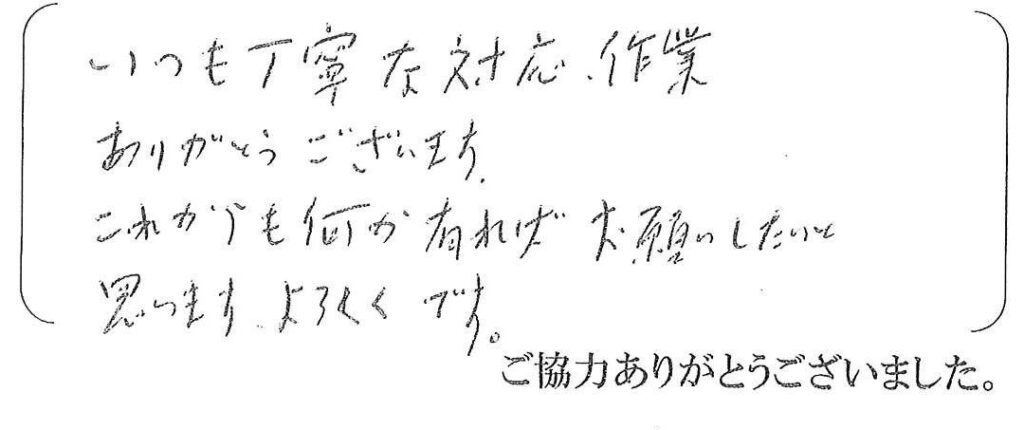 いつも丁寧な対応、作業
ありがとうございます。
これからも何か有ればお願いしたいと
思います。よろしくです。
ご協力ありがとうございました。